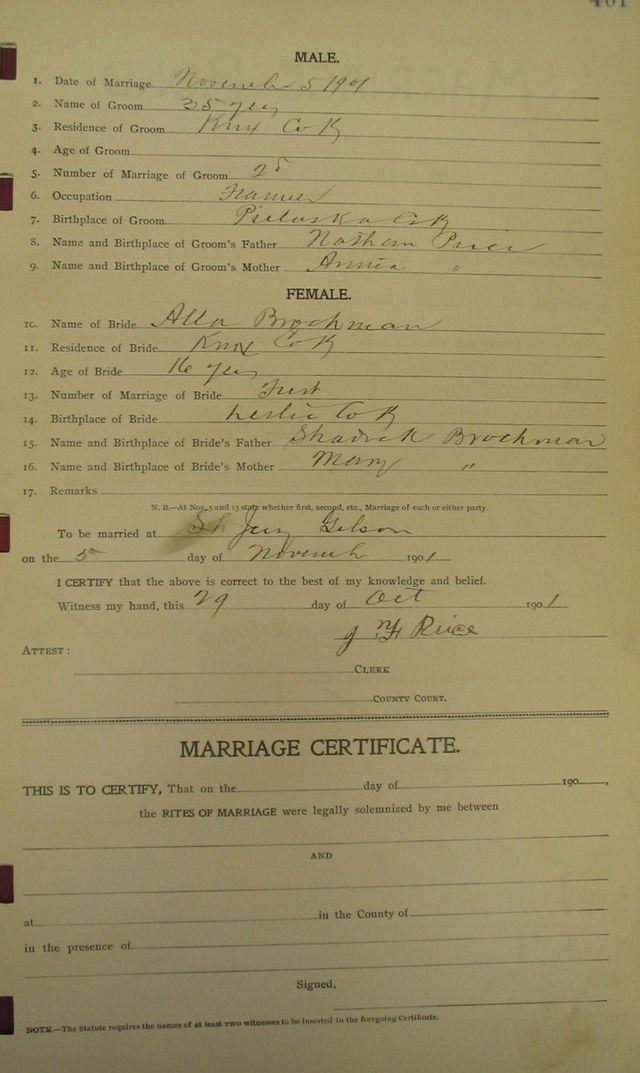 401
MALE.
1. Date of Marriage November 5 1901
2. Name of Groom 35 years
3. Residence of Groom Knx Co Ky
4. Age of Groom
5. Number of Marriage of Groom 2d
6. Occupation Farmer
7. Birthplace of Groom Puluska Co Ky
8. Name and Birthplace of Groom's Father Nathan Price
9. Name and Birthplace of Groom's Mother Annia "
FEMALE.
10. Name of Bride Alla Brockman
11. Residence of Bride Knx Co K
12. Age of Bride 16 years
13. Number of Marriage of Bride First
14. Birthplace of Bride Leslie Co K
15. Name and Birthplace of Bride's Father Shadrak Brockman
16. Name and Birthplace of Bride's Mother Mary "
17. Remarks
N. B.—At Nos. 5 and 13 state whether first, second, etc., Marriage of each or either party.
To be married at Gelson
on the 5 day of Novemb 1901
I CERTIFY that the above is correct to the best of my knowledge and belief.
Witness my hand, this 29 day of Oct 1901
ATTEST:
CLERK
COUNTY COURT.
MARRIAGE CERTIFICATE.
THIS IS TO CERTIFY, That on the day of 190 ,
the RITES OF MARRIAGE were legally solemnized by me between
AND
at in the County of
in the presence of
Signed,
NOTE.—The Statute requires the names of at least two witnesses to be inserted in the foregoing Certificate.